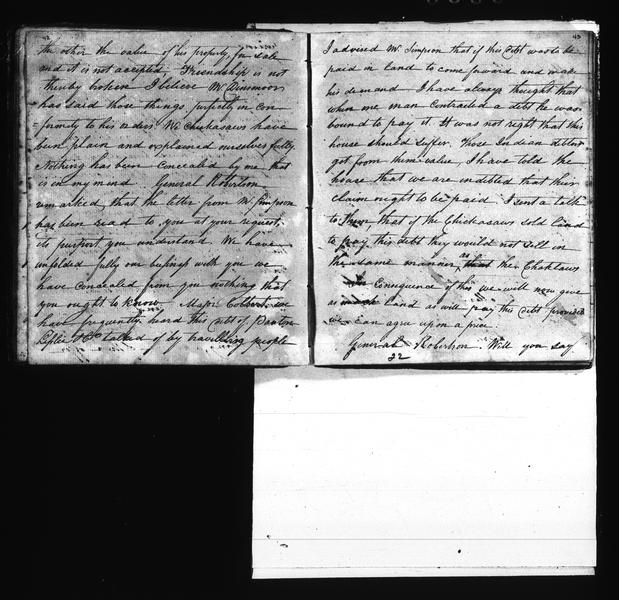 the other the value of his property, for sale
and it is not accepted, Friendship is not
thereby broken I believe Mr Dinsmoor
has said those things perfectly in con
formity to his orders. We Chickasaws have
been plain and explained ourselves fully
Nothing has been concealed by me that
is in my mind General Robertson
remarked, that the letter from Mr Simpson
has been read to you at your request,
its purport you understand. We have
unfolded fully our business with you we
have concealed from you nothing that
you ought to know Major Colbert. We
have frequently heard this debt of Panton
Leslie & Co talked of by travelling people
43
I advised Mr Simpson that if this debt was to be
paid in land to come forward and make
his demand I have always thought that
when one man contracted a debt he was
bound to pay it. It was not right that this
house should suffer. Those Indean debtors
got from them value, I have told the
house that we are indebted that their
claim ought to be paid I sent a talk
to them, that if the Chickasaws sold land
to pay this debt they would not sell in
the same manner, as that the Choktaws
In Consequence of this we will now give
as much land as will pay this debt provided
we can agree upon a price
General Robertson. Will you say
22